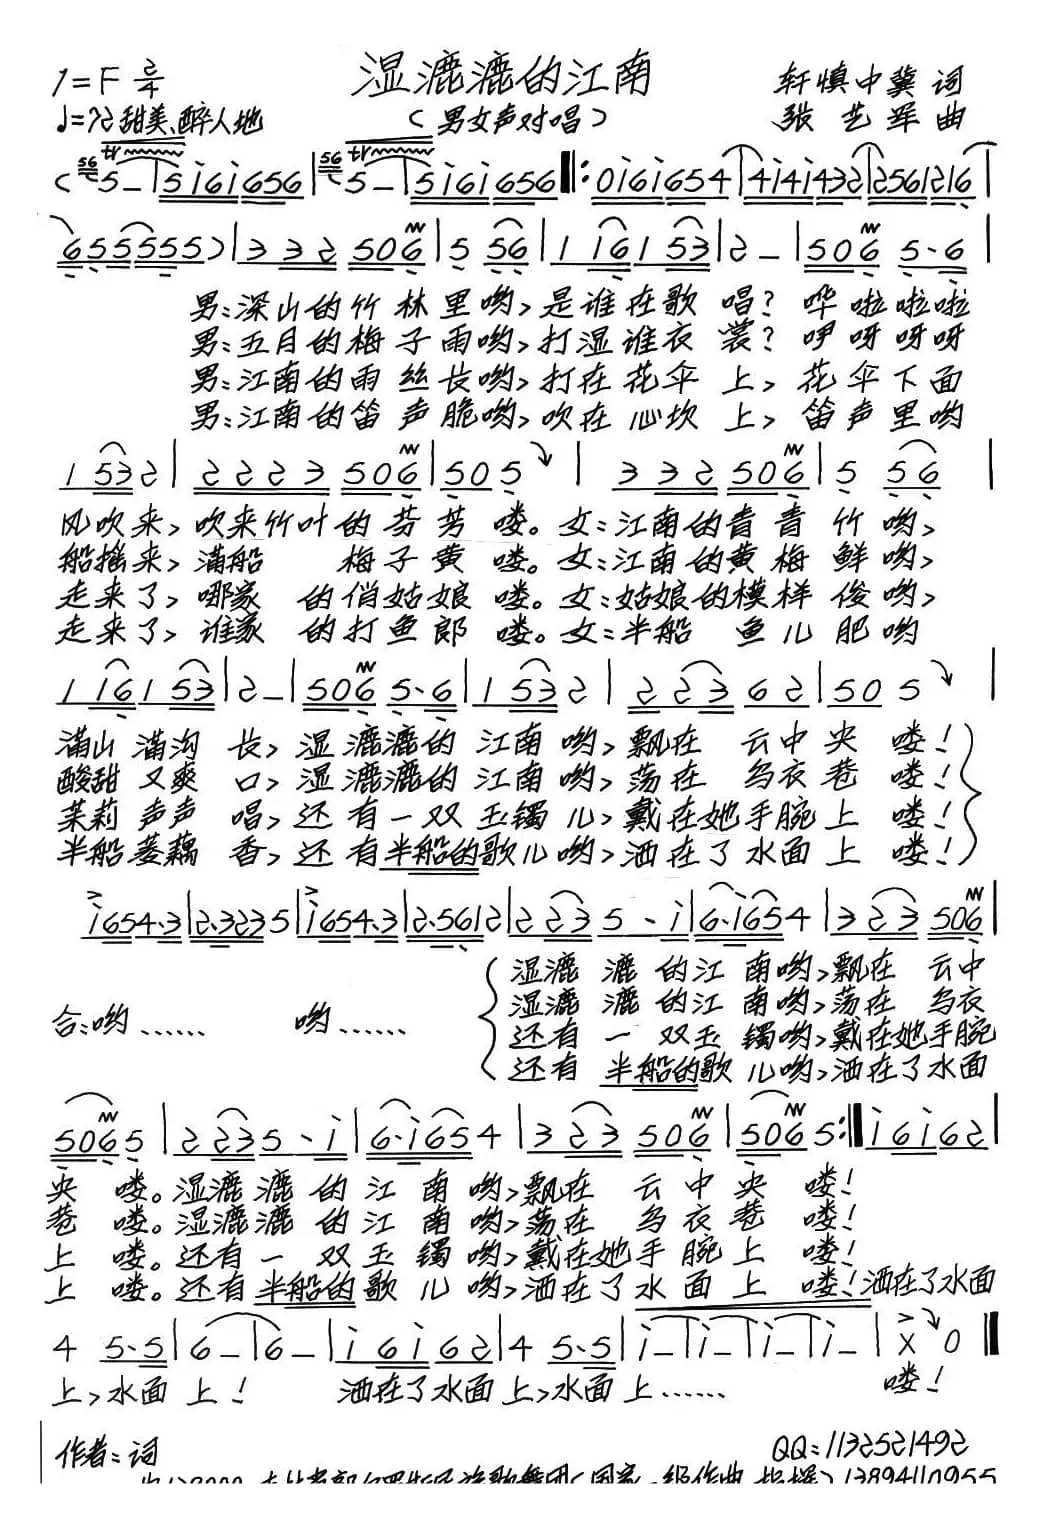 湿漉漉的江南
1=F 2/4
轩慎中冀 词
♩=72 甜美、醉人地
（男女声对唱）
张艺军 曲
(56 tr 5 – | 5 i 6 i 6 5 6 | 56 tr 5 – | 5 i 6 i 6 5 6 ‖: 0 i 6 i 6 5 4 | 4 i 4 i 4 3 2 | 2 5 6 1 2 1 6 |
6 5 5 5 5 5) | 3 3 2 5 0 6 | 5 5 6 | 1 1 6 1 5 3 | 2 – | 5 0 6 5 · 6 |
男:深山的竹林里哟,是谁在歌唱?哗啦啦啦
男:五月的梅子雨哟,打湿谁衣裳?咿呀呀呀
男:江南的雨丝长哟,打在花伞上,花伞下面
男:江南的笛声脆哟,吹在心坎上,笛声里哟
1 5 3 2 | 2 2 2 3 5 0 6 | 5 0 5 | 3 3 2 5 0 6 | 5 5 6 |
风吹来,吹来竹叶的芬芳喽。女:江南的青青竹哟,
船摇来,满船 梅子黄喽。女:江南的黄梅鲜哟,
走来了,哪家 的俏姑娘喽。女:姑娘的模样俊哟,
走来了,谁家 的打鱼郎喽。女:半船 鱼儿肥哟
1 1 6 1 5 3 | 2 – | 5 0 6 5 · 6 | 1 5 3 2 | 2 2 3 6 2 | 5 0 5 |
满山满沟长,湿漉漉的江南哟,飘在 云中央喽!
酸甜又爽口,湿漉漉的江南哟,荡在 乌衣巷喽!
茉莉声声唱,还有一双玉镯儿,戴在她手腕上喽!
半船菱藕香,还有半船的歌儿哟,洒在了水面上喽!
i 6 5 4 · 3 | 2 · 3 2 3 5 | i 6 5 4 · 3 | 2 · 5 6 1 2 | 2 2 3 5 · i | 6 · i 6 5 4 | 3 2 3 5 0 6 |
湿漉漉的江南哟,飘在 云中
湿漉漉的江南哟,荡在 乌衣
合:哟…… 哟……
还有一双玉镯哟,戴在她手腕
还有半船的歌儿哟,洒在了水面
5 0 6 5 | 2 2 3 5 · i | 6 · i 6 5 4 | 3 2 3 5 0 6 | 5 0 6 5 :‖ i 6 i 6 2 |
央喽。湿漉漉的江南哟,飘在 云中央喽!
巷喽。湿漉漉的江南哟,荡在 乌衣巷喽!
上喽。还有一双玉镯哟,戴在她手腕上喽!
上喽。还有半船的歌儿哟,洒在了水面上喽!洒在了水面
4 5 · 5 | 6 – | 6 – | i 6 i 6 2 | 4 5 · 5 | i – | i – | i – | i – | X 0 ‖
上,水面上! 洒在了水面上,水面上…… 喽!
作者:词
QQ:1132521492